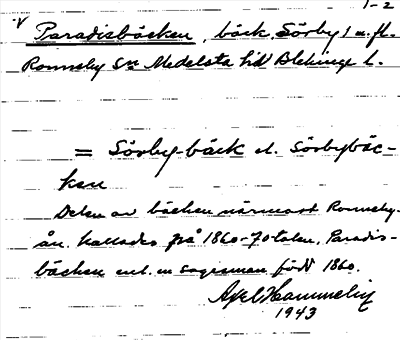 1-2
V Paradisbäcken, bäck, Sörby 1 m. fl.
Ronneby sn Medelsta hd Blekinge l.
= Sörby-bäck el. Sörbybäc-
ken
Delen av bäcken närmast Ronneby-
ån kallades på 1860-70talen, Paradis-
bäcken enl. en sagesman född 1860.
Axel Hammelin
1943